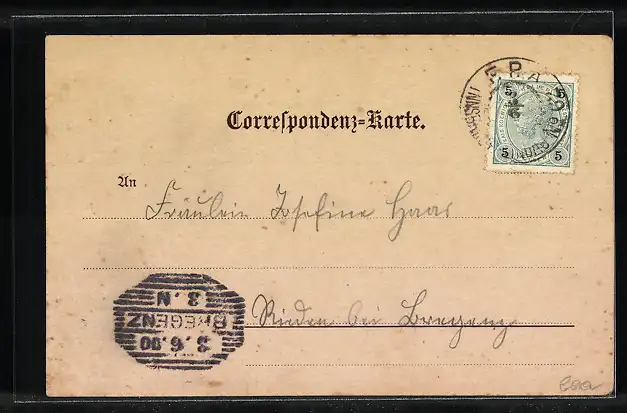 Correspondenz-Karte.
5 5
5 5
An
Fräulein Josefine Haas
Rieden bei Bregenz
BREGENZ
3.6.00
3.N